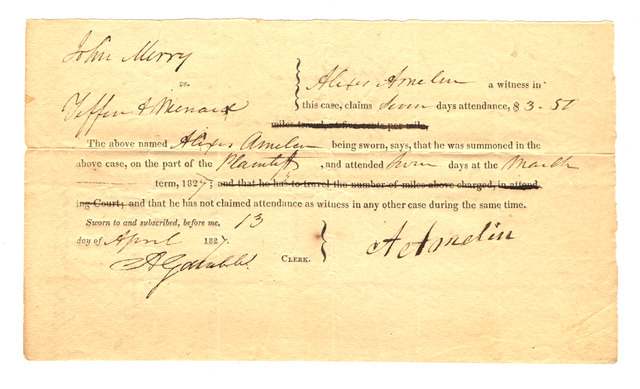 John Merry
vs.
Tiffin & Menard
Alexis Amelin a witness in
this case, claims seven days attendance, $3.50
miles travel, at five cents per mile.
The above named Alexis Amelin being sworn, says, that he was summoned in the
above case, on the part of the Plaintiff, and attended seven days at the March
term, 1827; and that he has to travel the number of miles above charged, in attend-
ing Court; and that he has not claimed attendance as witness in any other case during the same time.
Sworn to and subscribed, before me, 13
day of April 1827.
A Gamble CLERK.
A Amelin